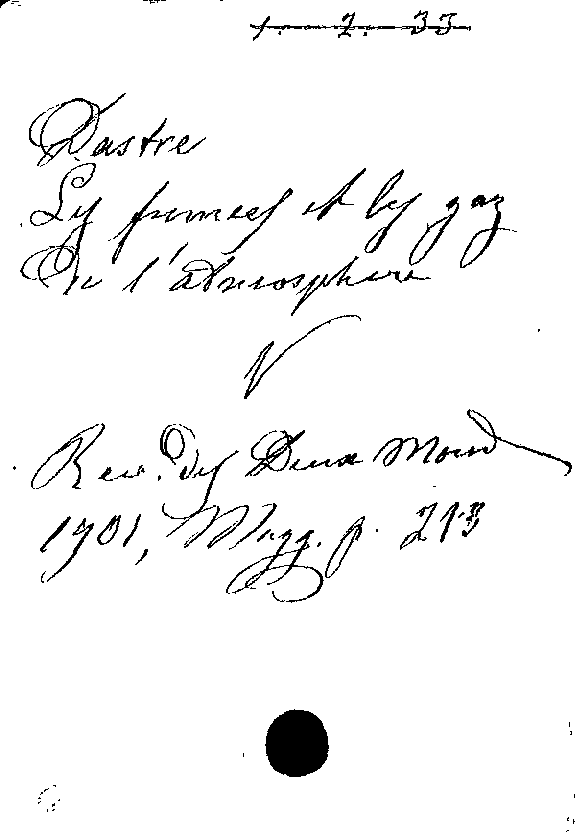 1. 2. 33
Dastre
Les fumees et les gaz
De l'atmosphere
V
Rev. des Deux Mond
1901, Magg. p. 213